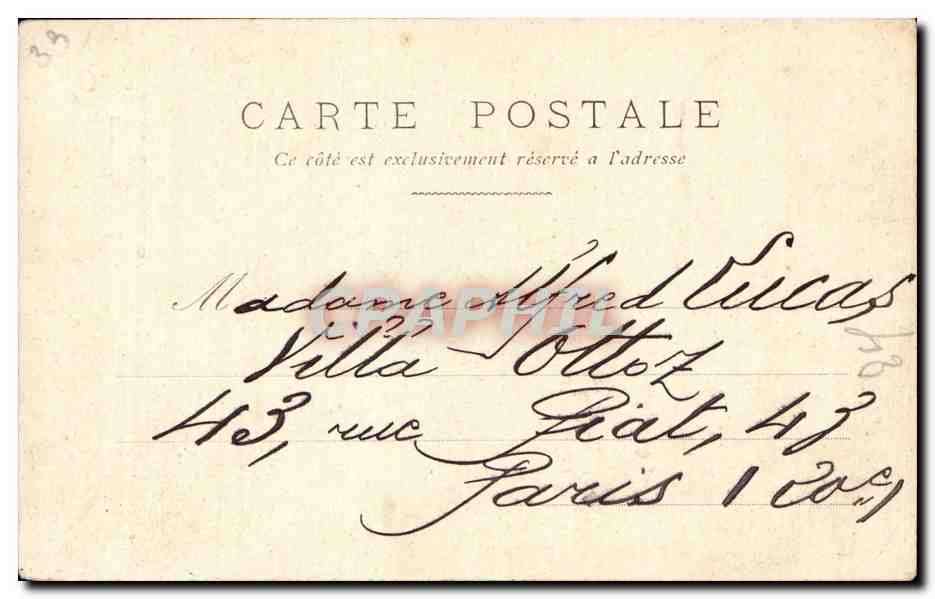 33
CARTE POSTALE
Ce côté est exclusivement réservé a l'adresse
Madame Alfred Lucas
Villa Ottoz
43, rue Piat, 43
Paris (20e)
CPAPHIL